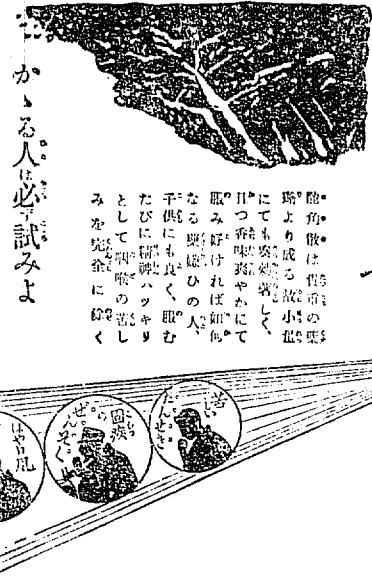 かゝる人は必ず試みよ
角散は貴重の薬
より成る故小量
にても奏効著しく、
且つ香味爽やかにて
服み好ければ如何
なる薬嫌ひの人、
子供にも良く、服む
たびに精神ハッキリ
として咽喉の苦し
みを完全に除く
苦しい
たんせき
固疾
ぜんそく
はやり風